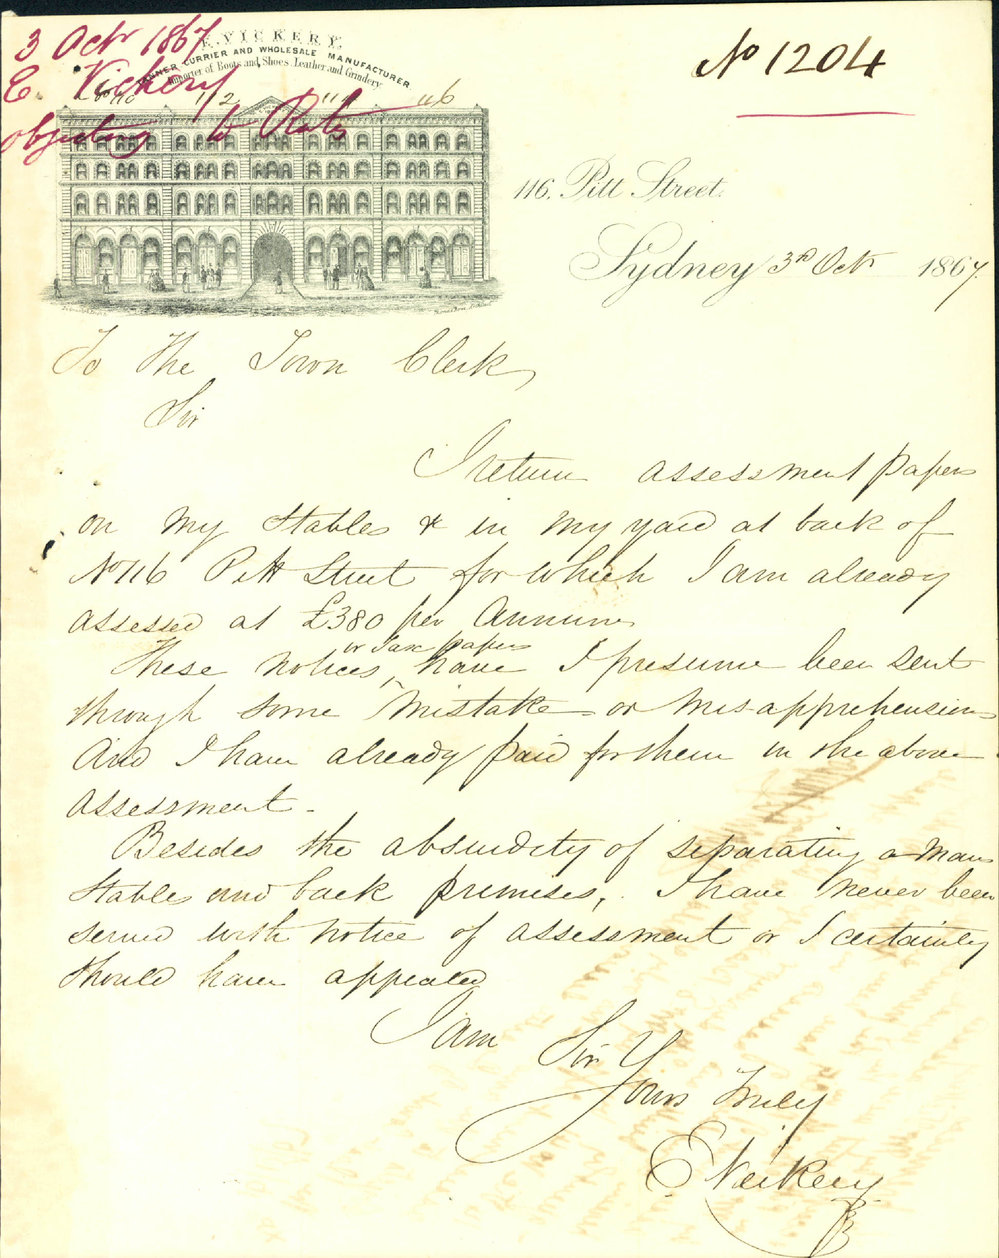 3 Octr 1867
E. Vickery
objecting to Rates
E. VICKERY,
TANNER CURRIER AND WHOLESALE MANUFACTURER
Importer of Boots and Shoes, Leather and Grindery
No 110 112 114 116
No 1204
116. Pitt Street.
Sydney 3rd Octr 1867.
To The Town Clerk,
Sir
I return assessment papers
on my Stables & in my yard at back of
No 116 Pitt Street for which I am already
assessed at £380 per Annum
or Tax papers
These notices, have I presume been sent
through some Mistake or Misapprehension
And I have already paid for them in the above
assessment.
Besides the absurdity of separating a Mans
Stables and back premises, I have never been
served with notice of assessment or I certainly
should have appealed
I am
Sir
Yours Truly
E Vickery